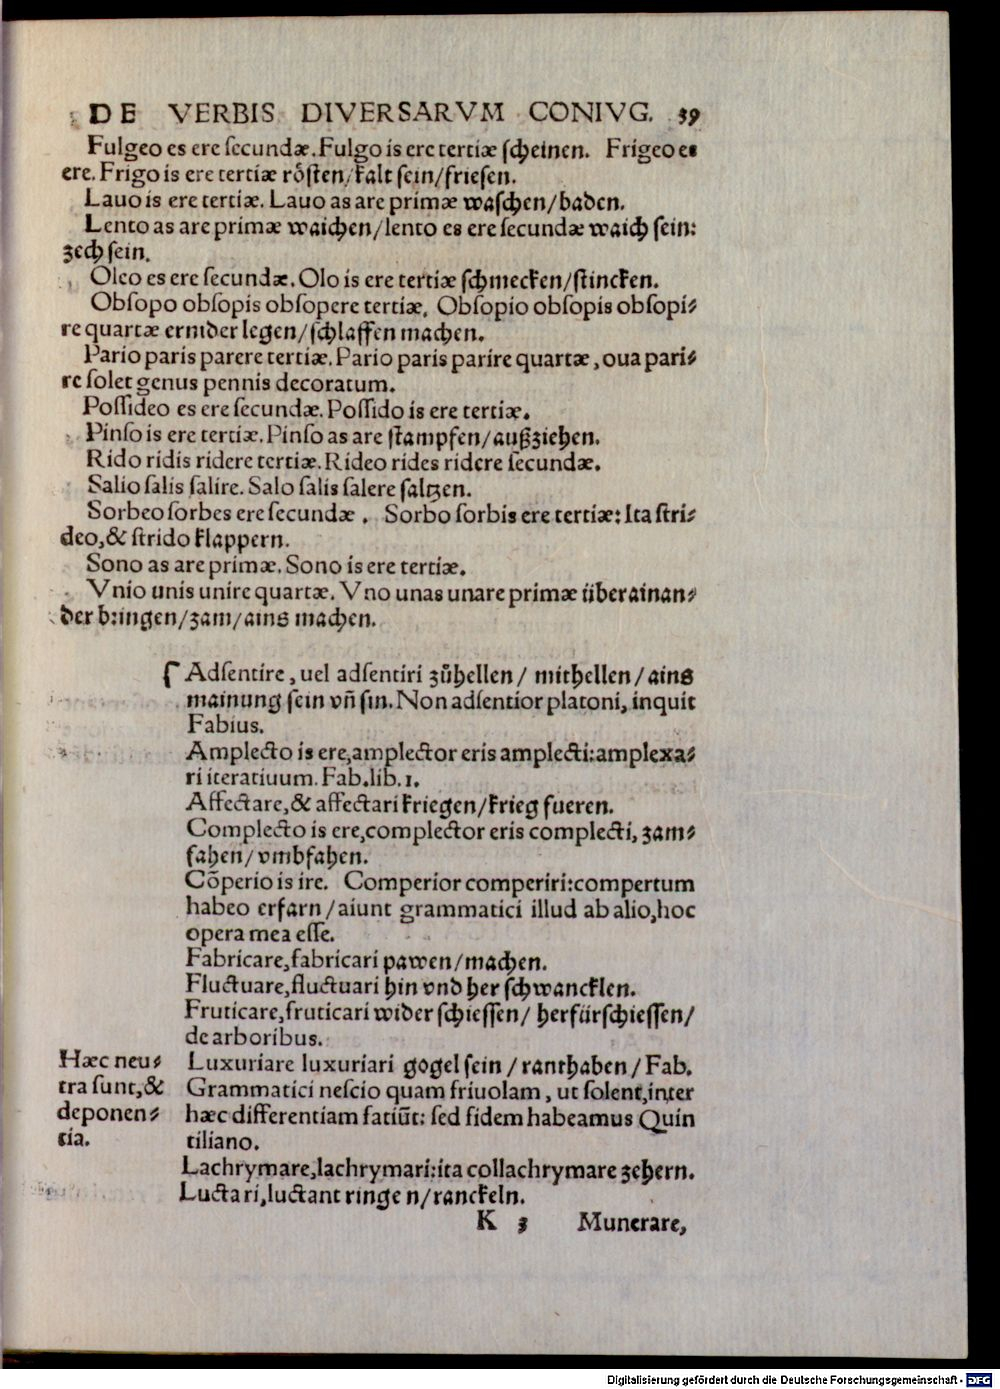 DE VERBIS DIVERSARVM CONIVG. 39
Fulgeo es ere ſecundæ. Fulgo is ere tertiæ ſcheinen. Frigeo es
ere. Frigo is ere tertiæ roͤſten/kalt ſein/frieſen.
Lauo is ere tertiæ. Lauo as are primæ waſchen/baden.
Lento as are primæ waichen/lento es ere ſecundæ waich ſein:
zech ſein.
Oleo es ere ſecundæ. Olo is ere tertiæ ſchmecken/ſtincken.
Obſopo obſopis obſopere tertiæ. Obſopio obſopis obſopi⸗
re quartæ ernider legen/ſchlaffen machen.
Pario paris parere tertiæ. Pario paris parire quartæ, oua pari⸗
re ſolet genus pennis decoratum.
Poſſideo es ere ſecundæ. Poſſido is ere tertiæ.
Pinſo is ere tertiæ. Pinſo as are ſtampfen/außziehen.
Rido ridis ridere tertiæ. Rideo rides ridere ſecundæ.
Salio ſalis ſalire. Salo ſalis ſalere ſaltzen.
Sorbeo ſorbes ere ſecundæ. Sorbo ſorbis ere tertiæ: Ita ſtri⸗
deo, & ſtrido klappern.
Sono as are primæ. Sono is ere tertiæ.
Vnio unis unire quartæ. Vno unas unare primæ überainan⸗
der bringen/zam/ains machen.
Adſentire, uel adſentiri zůhellen/ mithellen/ains
mainung ſein vñ ſin. Non adſentior platoni, inquit
Fabius.
Amplecto is ere, amplector eris amplecti: amplexa⸗
ri iteratiuum. Fab. lib. 1.
Affectare, & affectari kriegen/krieg fueren.
Complecto is ere, complector eris complecti, zam⸗
fahen/vmbfahen.
Cõperio is ire. Comperior comperiri: compertum
habeo erfarn/aiunt grammatici illud ab alio, hoc
opera mea eſſe.
Fabricare, fabricari pawen/machen.
Fluctuare, fluctuari hin vnd her ſchwancklen.
Fruticare, fruticari wider ſchieſſen/ herfürſchieſſen/
de arboribus.
Hæc neu⸗
tra ſunt, &
deponen⸗
tia.
Luxuriare luxuriari gogel ſein/ranthaben/Fab.
Grammatici neſcio quam friuolam, ut ſolent, inter
hæc differentiam fatiūt: ſed fidem habeamus Quin
tiliano.
Lachrymare, lachrymari: ita collachrymare zehern.
Luctari, luctant ringen/ranckeln.
K 3 Munerare,
Digitalisierung gefördert durch die Deutsche Forschungsgemeinschaft - DFG